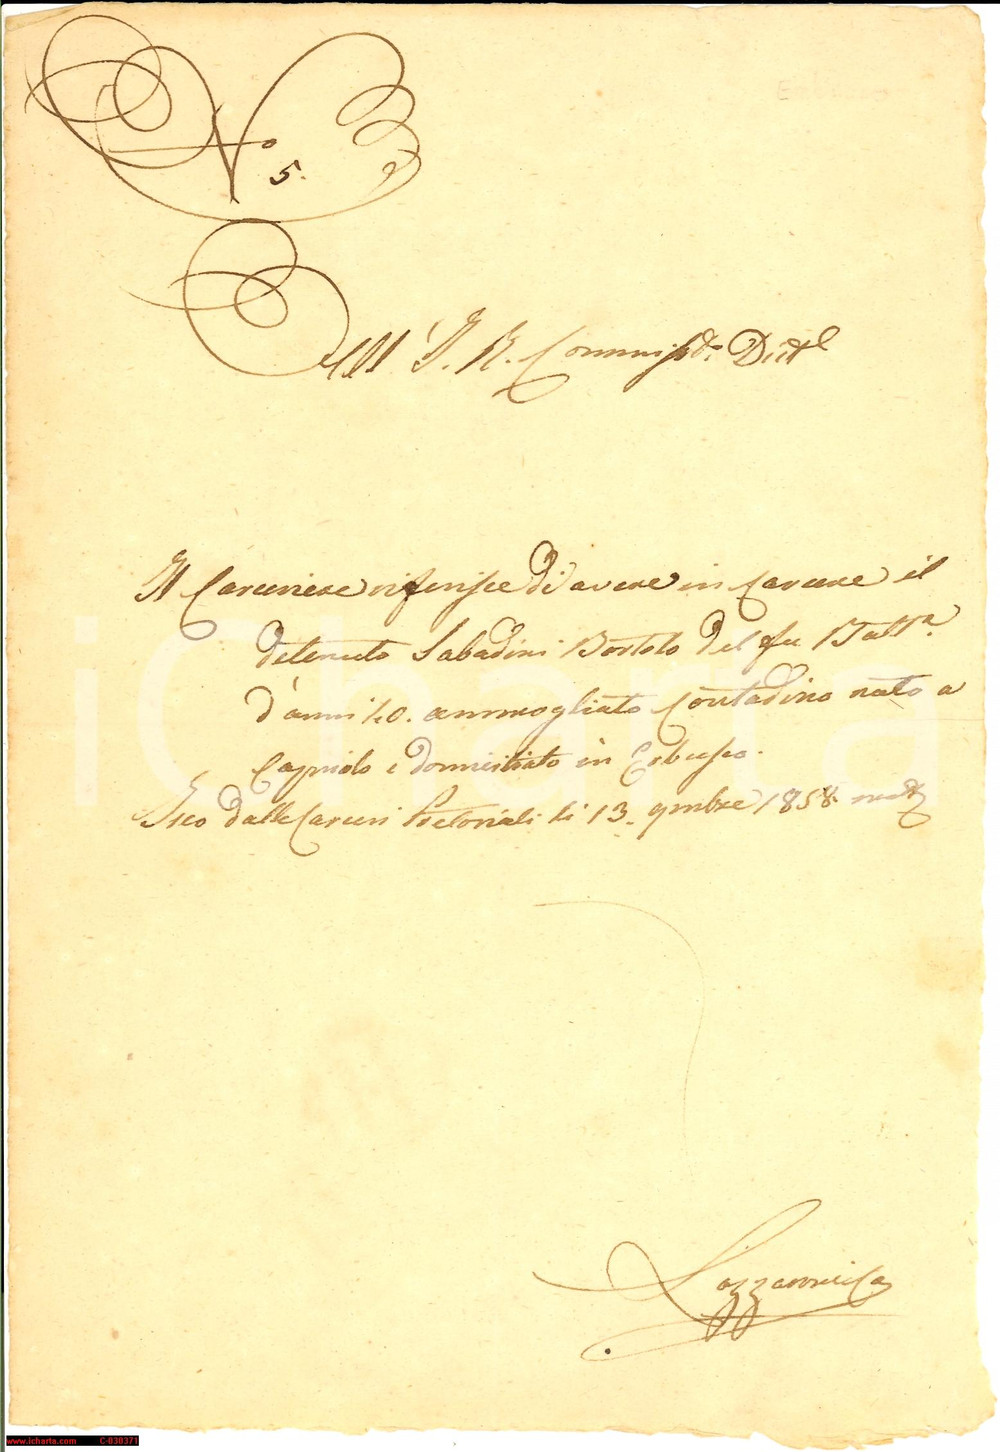 N.o 5.
All' I. R. Commiss.to Dist.l
Il Carceriere riferisce di avere in Carcere il
detenuto Sabadini Bortolo del fu Batt.a
d'anni 40. ammogliato Contadino nato a
Capriolo e domiciliato in Erbusco.
Iseo dalle Carceri Pretoriali li 13. 9mbre 1858.
iCharta
www.icharta.com C-030371